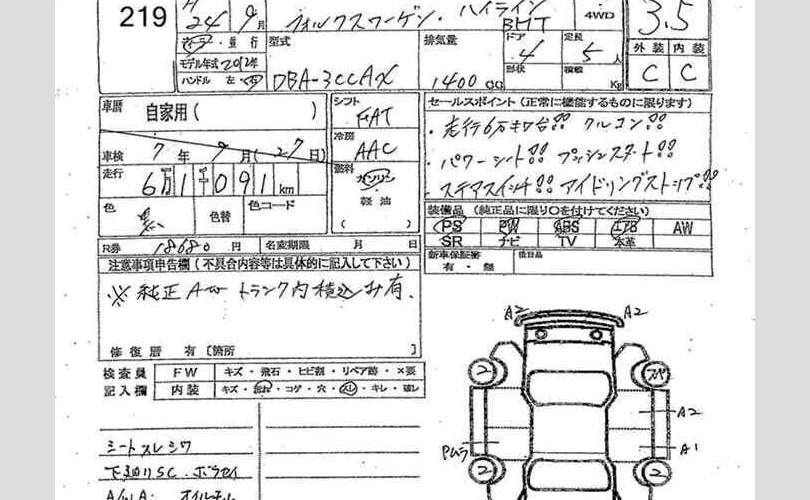 219
24年9月
フォルクスワーゲン・ハイライン
BMT
4WD
3.5
並行
型式
排気量
ドア
4
定員
5人
外装 内装
モデル年式 2012年
ハンドル 左・右
DBA-3CCAX
1400cc
形状
積載
Kg
C C
車暦
自家用( )
シフト
FAT
セールスポイント(正常に機能するものに限ります)
・走行6万キロ台!! クルコン!!
車検
7年9月(27日)
冷房
AAC
・パワーシート!! プッシュスタート!!
走行
6万1千091km
燃料
ガソリン
軽油
( )
・ステアスイッチ!! アイドリングストップ!!
色
黒
色替
色コード
装備品(純正品に限り○を付けてください)
PS PW ABS エアB AW
SR ナビ TV 本革
R券
18680円
名変期限 月 日
新車保証書
有・無
後日品
注意事項申告欄(不具合内容等は具体的に記入して下さい)
※純正AW トランク内積込み有.
修復歴 有 〔箇所 〕
検査員
記入欄
FW
キズ・飛石・ヒビ割・リペア跡・×要
内装
キズ・汚れ・コゲ・穴・スレ・キレ・破レ
A2
A2
2
スペ
A2
Pムラ
A1
2
2
シートスレシワ
下廻りSC.